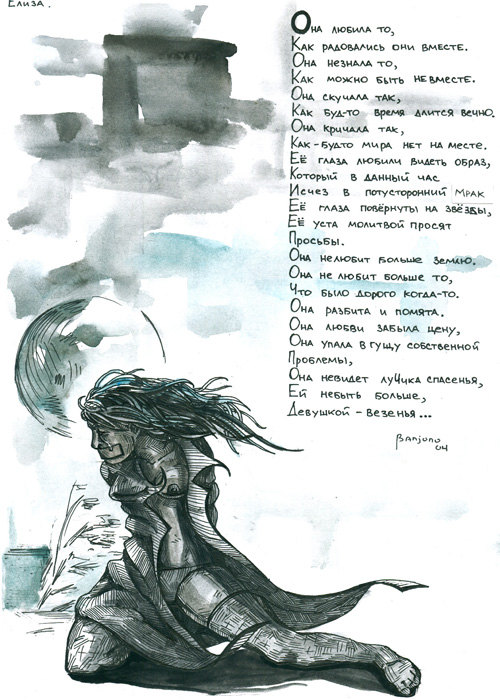 Елиза.
Она любила то,
Как радовались они вместе.
Она незнала то,
Как можно быть невместе.
Она скучала так,
Как буд-то время длится вечно.
Она кричала так,
Как-будто мира нет на месте.
Её глаза любили видеть образ,
Который в данный час
Исчез в потусторонний мрак
Её глаза повёрнуты на звёзды,
Её уста молитвой просят
Просьбы.
Она нелюбит больше землю.
Она не любит больше то,
Что было дорого когда-то.
Она разбита и помята.
Она любви забыла цену,
Она упала в гущу собственной
Проблемы,
Она невидет луччика спасенья,
Ей небыть больше,
Девушкой - везенья...
Banjono
04